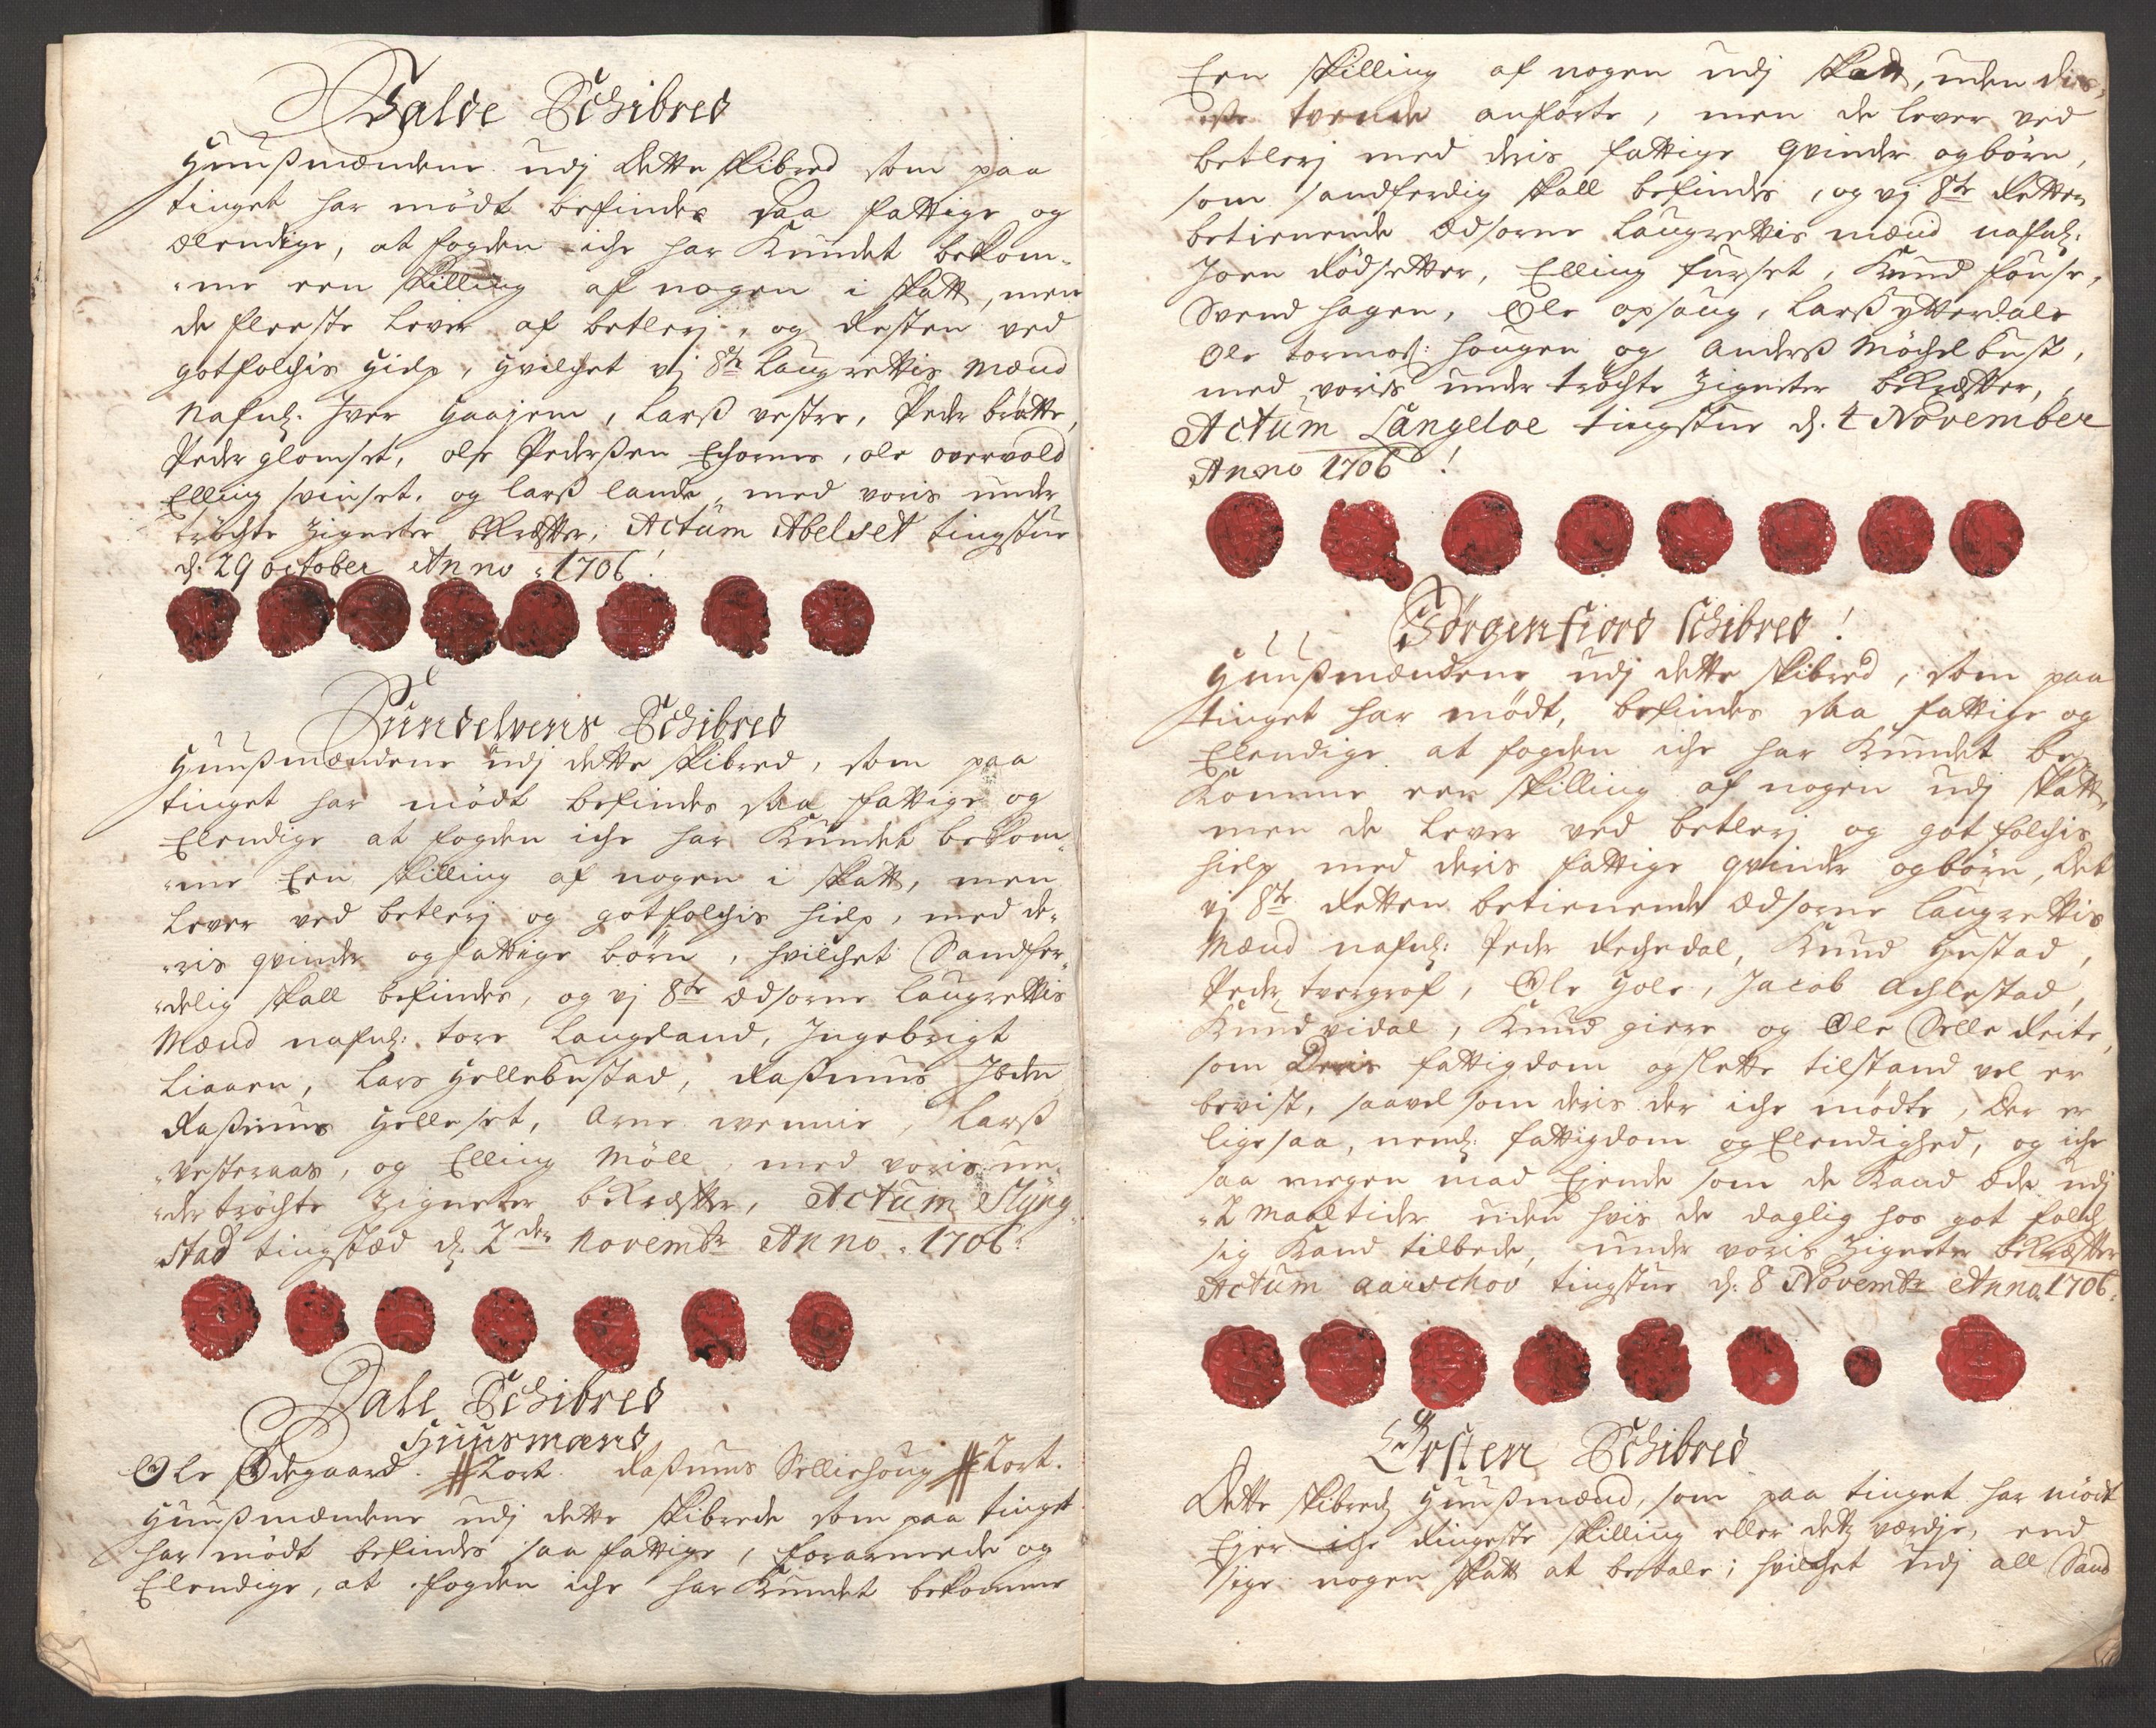 Valde Schibred
Huusmændene udj dette skibred som paa
tinget har mødt befindes saa fattige og
ælendige, at fogden iche har Kundet bekom-
me een skilling af nogen i skatt, men
de fleeste lever af betlerj, og resten ved
gotfolchis hielp, hvilchet vj 8te laugrettis mænd
Nafnl: Iver Haajem, larss vestre, Peder bratte,
Peder glomset, ole Pederssen Ehornes, ole overvold
Elling svinset, og larss lande, med voris under
tröchte Zigneter bekræffter, Actum Abelset tingstue
d: 29 october Anno 1706!
Sundelvens Schibred
Huusmændene udj dette skibred, som paa
tinget har mødt befindes saa fattige og
Elendige at fogden iche har Kundet bekom-
me Een skilling af nogen i skatt, men
lever ved betlerj og gotfolchis hielp, med de-
ris qvinder og fattige börn, hvilchet Sandfer-
delig skall befindes, og vj 8te ædsorne laugrettis
Mænd nafnl: tore langeland, Ingebrigt
liaaen, Lars Hellebustad, Rassmus
Rassmus Helleset, Arne, Larss
vesteraas, og Elling Möll, med voris un-
dertröchte Zigneter bekræffter, Actum Slÿng-
stad tingstæd d: 2den Novembr Anno 1706.
Dale Schibred
Huusmænd
Ole Ödegaard # 2 ort. Rassmus Selliehoug # 2 ort.
Huusmændene udj dette skibrede som paa tinget
har mødt befindes saa fattige, forarmede og
Elendige, at fogden iche har Kundet bekomme
Een skilling af nogen udj skatt, uden dis-
se tvende anførte, men de lever ved
betlerj med deris fattige qvinder og börn,
som sandferdig skall befindes, og vj 8te retten
betienende ædsorne laugrettis mænd nafnl:
Joen Rödsetter, Elling furset, Knud fouse,
Svend hagen, Ole opsaug, larss ytterdale
Ole tormos: hougen og Anderss Möchelbust,
med voris under tröchte Zigneter bekræffter,
Actum Langeloe tingstue d: 4 November
Anno 1706!
Sörgenfiord schibred!
Huusmændene udj dette skibred, som paa
tinget har mödt, befindes saa fattige og
Elendige at fogden iche har Kundet be-
komme een skilling af nogen udj skatt,
men de lever ved betlerj og got folchis
hielp med deris fattige qvinder og börn, det
vj 8te retten betienende ædsorne laugrettis
Mænd nafnl: Peder Rechedal, Knud Hustad,
Peder tvergrof, Ole Hole, Jacob Achlestad,
Knud vidal, Knud giere og Ole Selle Reite,
som Deris fattigdom og slette tilstand vel er
bevist, saavel som deris der iche mödte, der er
lige saa, nemlig: fattigdom og Elendighed, og iche
saa megen mad Ejende som de Kand æde udj
2 maaltider uden hvis de daglig hos got folch
sig Kand tilbede, under voris Zigneter bekræffter
Actum aarschov tingstue d: 8 Novembr Anno 1706.
Örsten Schibred
Dette skibreds Huusmænd, som paa tinget har mödt
Ejer iche Ringeste skilling eller dets værdje, end
sige nogen skatt at betale; hvilchet udj all Sand